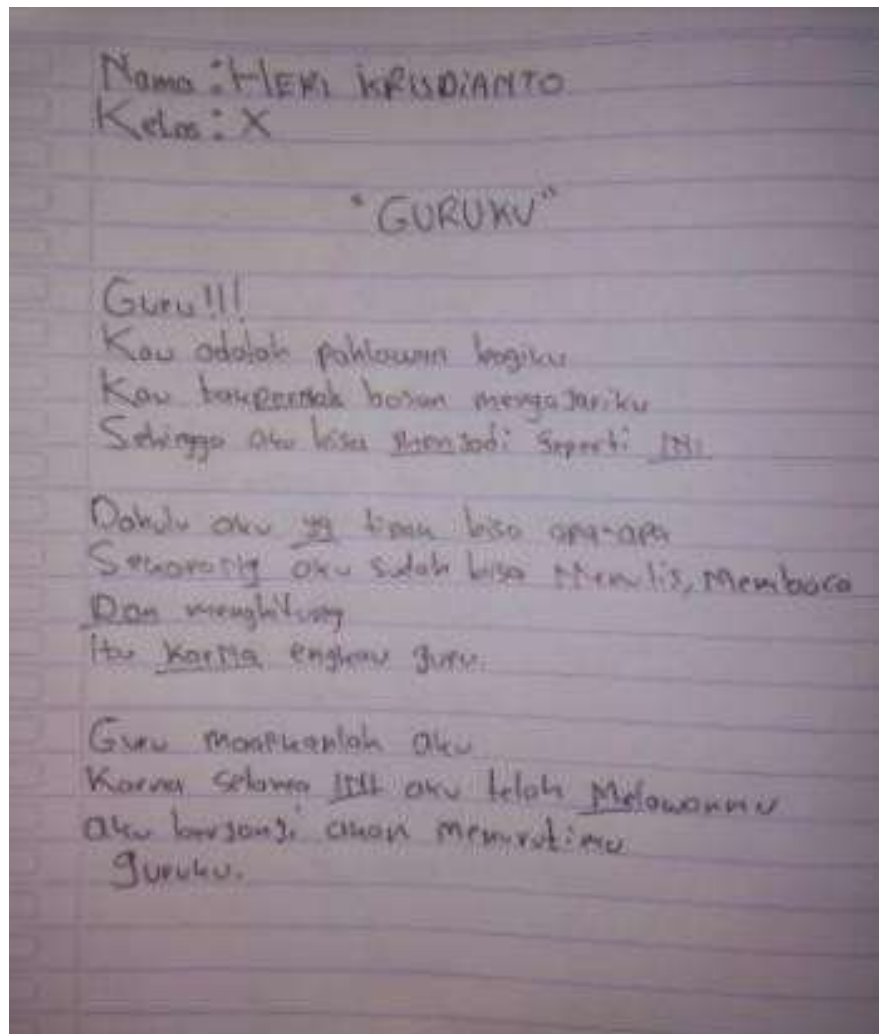 Nama : HERI KRUDIANTO
Kelas : X
"GURUKU"
Guru!!!
Kau adalah pahlawan bagiku
Kau takpernah bosan mengajariku
Sehingga aku bisa menjadi seperti INI
Dahulu aku yg tidak bisa apa-apa
Sekarang aku sudah bisa Menulis, Membaca
Dan menghitung
Itu Karna engkau guru.
Guru maapkanlah aku
Karna selama INI aku telah Melawanmu
aku berjanji akan menurutimu
guruku.